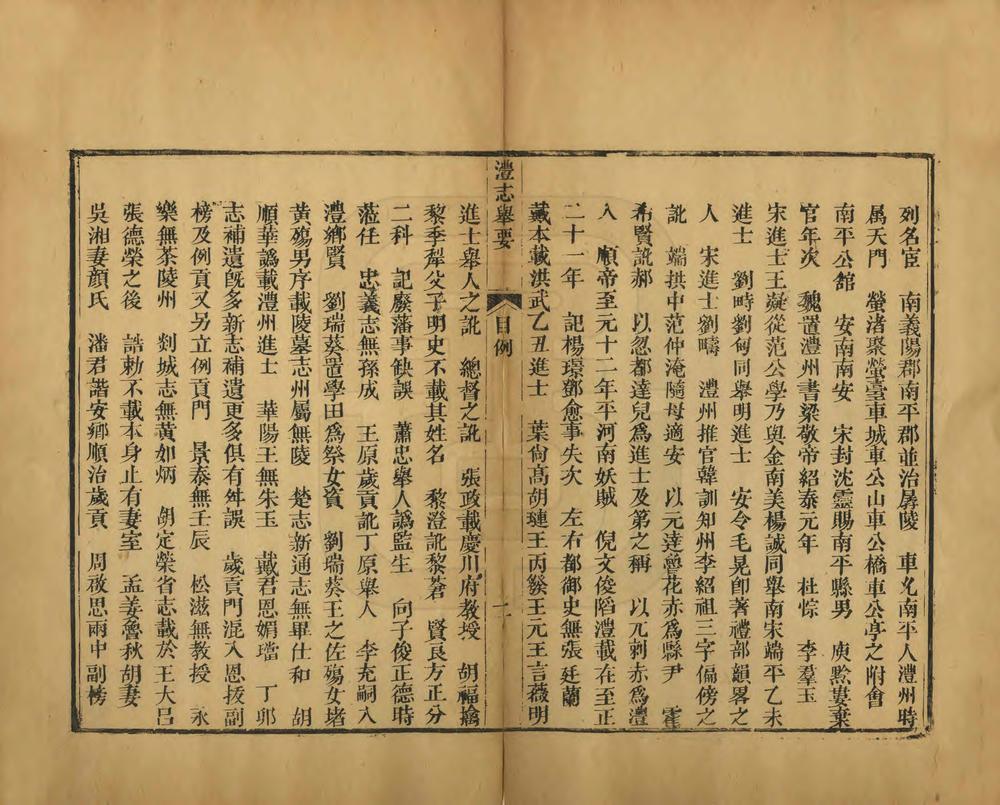 列名宦　南義陽郡南平郡並治孱陵　車允南平人澧州時
属天門　螢渚聚螢臺車城車公山車公橋車公亭之附會
南平公館　安南南安　宋封沈靈賜南平縣男　庾黔婁棄
官年次　魏置澧州書梁敬帝紹泰元年　杜悰　李羣玉
宋進士王凝從范公學乃與金南美楊誠同舉南宋端平乙未
進士　劉畤劉甸同舉明進士　安令毛晃卽著禮部韻畧之
人　宋進士劉疇　澧州推官韓訓知州李紹祖三字偏傍之
訛　端拱中范仲淹隨母適安　以元達魯花赤爲縣尹　霍
希賢訛郝　以忽都達兒爲進士及第之稱　以元剌赤爲澧
人　順帝至元十二年平河南妖賊　倪文俊陷澧載在至正
二十一年　記楊璟鄧愈事失次　左右都御史無張廷蘭
戴本載洪武乙丑進士　葉尙髙胡璉王丙發王元王言薇明
澧志舉要　目例　二
進士舉人之訛　總督之訛　張政載慶川府敎授　胡福擒
黎季犛父子明史不載其姓名　黎澄訛黎蒼　賢良方正分
二科　記廢藩事缺誤　蕭忠舉人譌監生　向子俊正德時
蒞任　忠義志無孫成　王原歲貢訛丁原舉人　李充嗣入
澧鄕賢　劉瑞葵置學田爲祭女資　劉瑞葵王之佐殤女堵
黃殤男序載陵墓志州屬無陵　楚志新通志無畢仕和　胡
順華譌載澧州進士　華陽王無朱玉　戴君恩媚璫　丁卯
志補遺旣多新志補遺更多俱有舛誤　歲貢門混入恩拔副
榜及例貢又另立例貢門　景泰無壬辰　松滋無教授　永
樂無茶陵州　剡城志無黃如炳　胡定榮省志載於王大呂
張德榮之後　誥勅不載本身止有妻室　孟姜魯秋胡妻
吳湘妻顔氏　潘君諧安鄕順治歲貢　周啟思雨中副榜